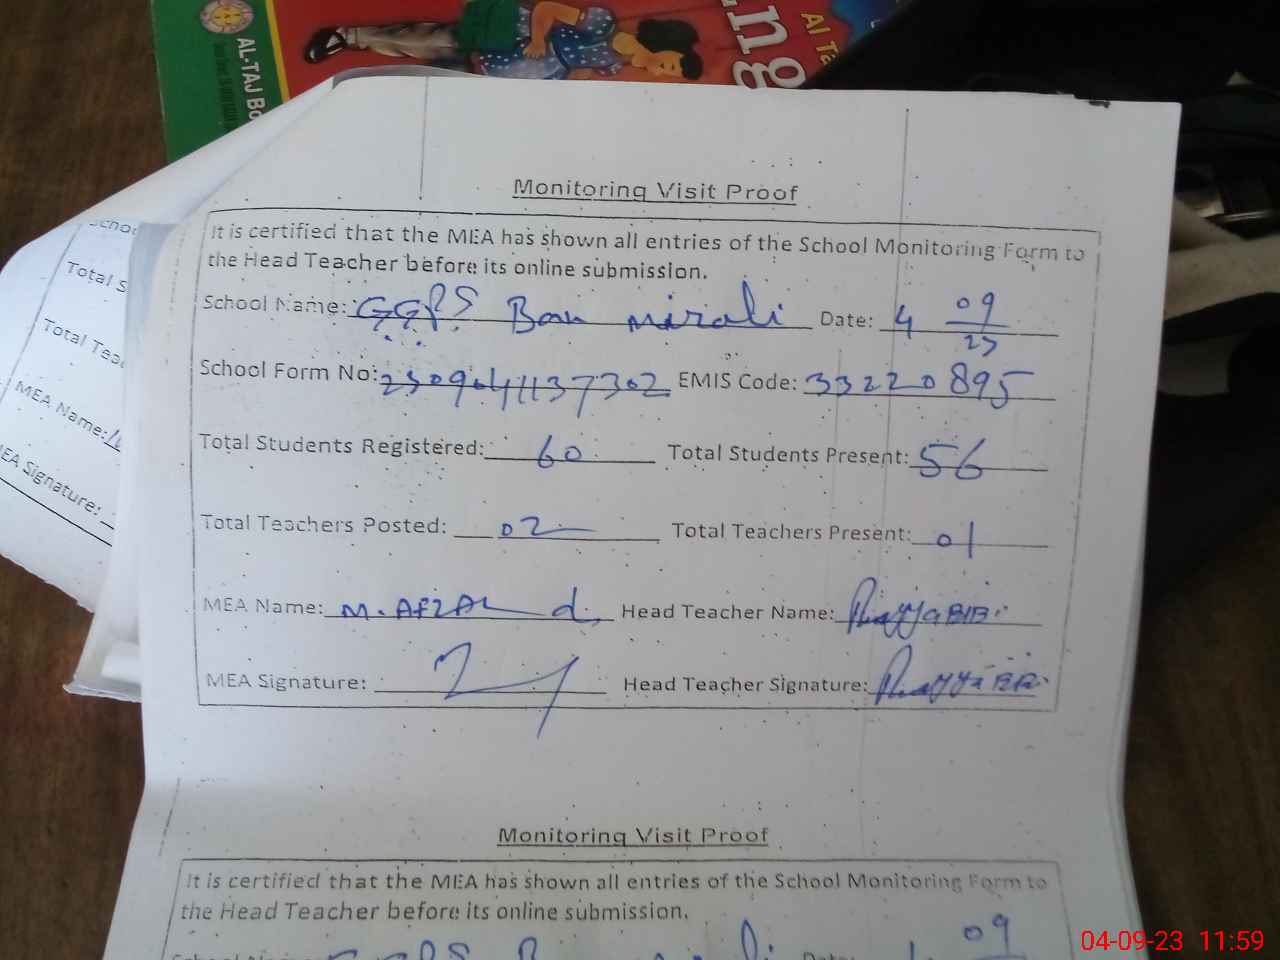 AL-TAJ
Al Ta
Monitoring Visit Proof
It is certified that the MEA has shown all entries of the School Monitoring Form to
the Head Teacher before its online submission.
School Name: GGPS Ban mirali Date: 4 09 23
School Form No: 2309041137302 EMIS Code: 33220895
Total Students Registered: 60 Total Students Present: 56
Total Teachers Posted: 02 Total Teachers Present: 01
MEA Name: M. AFZAL Head Teacher Name:
MEA Signature: Head Teacher Signature:
Total S
Total Tea
MEA Name:
EA Signature:
Monitoring Visit Proof
It is certified that the MEA has shown all entries of the School Monitoring Form to
the Head Teacher before its online submission.
09
04-09-23 11:59